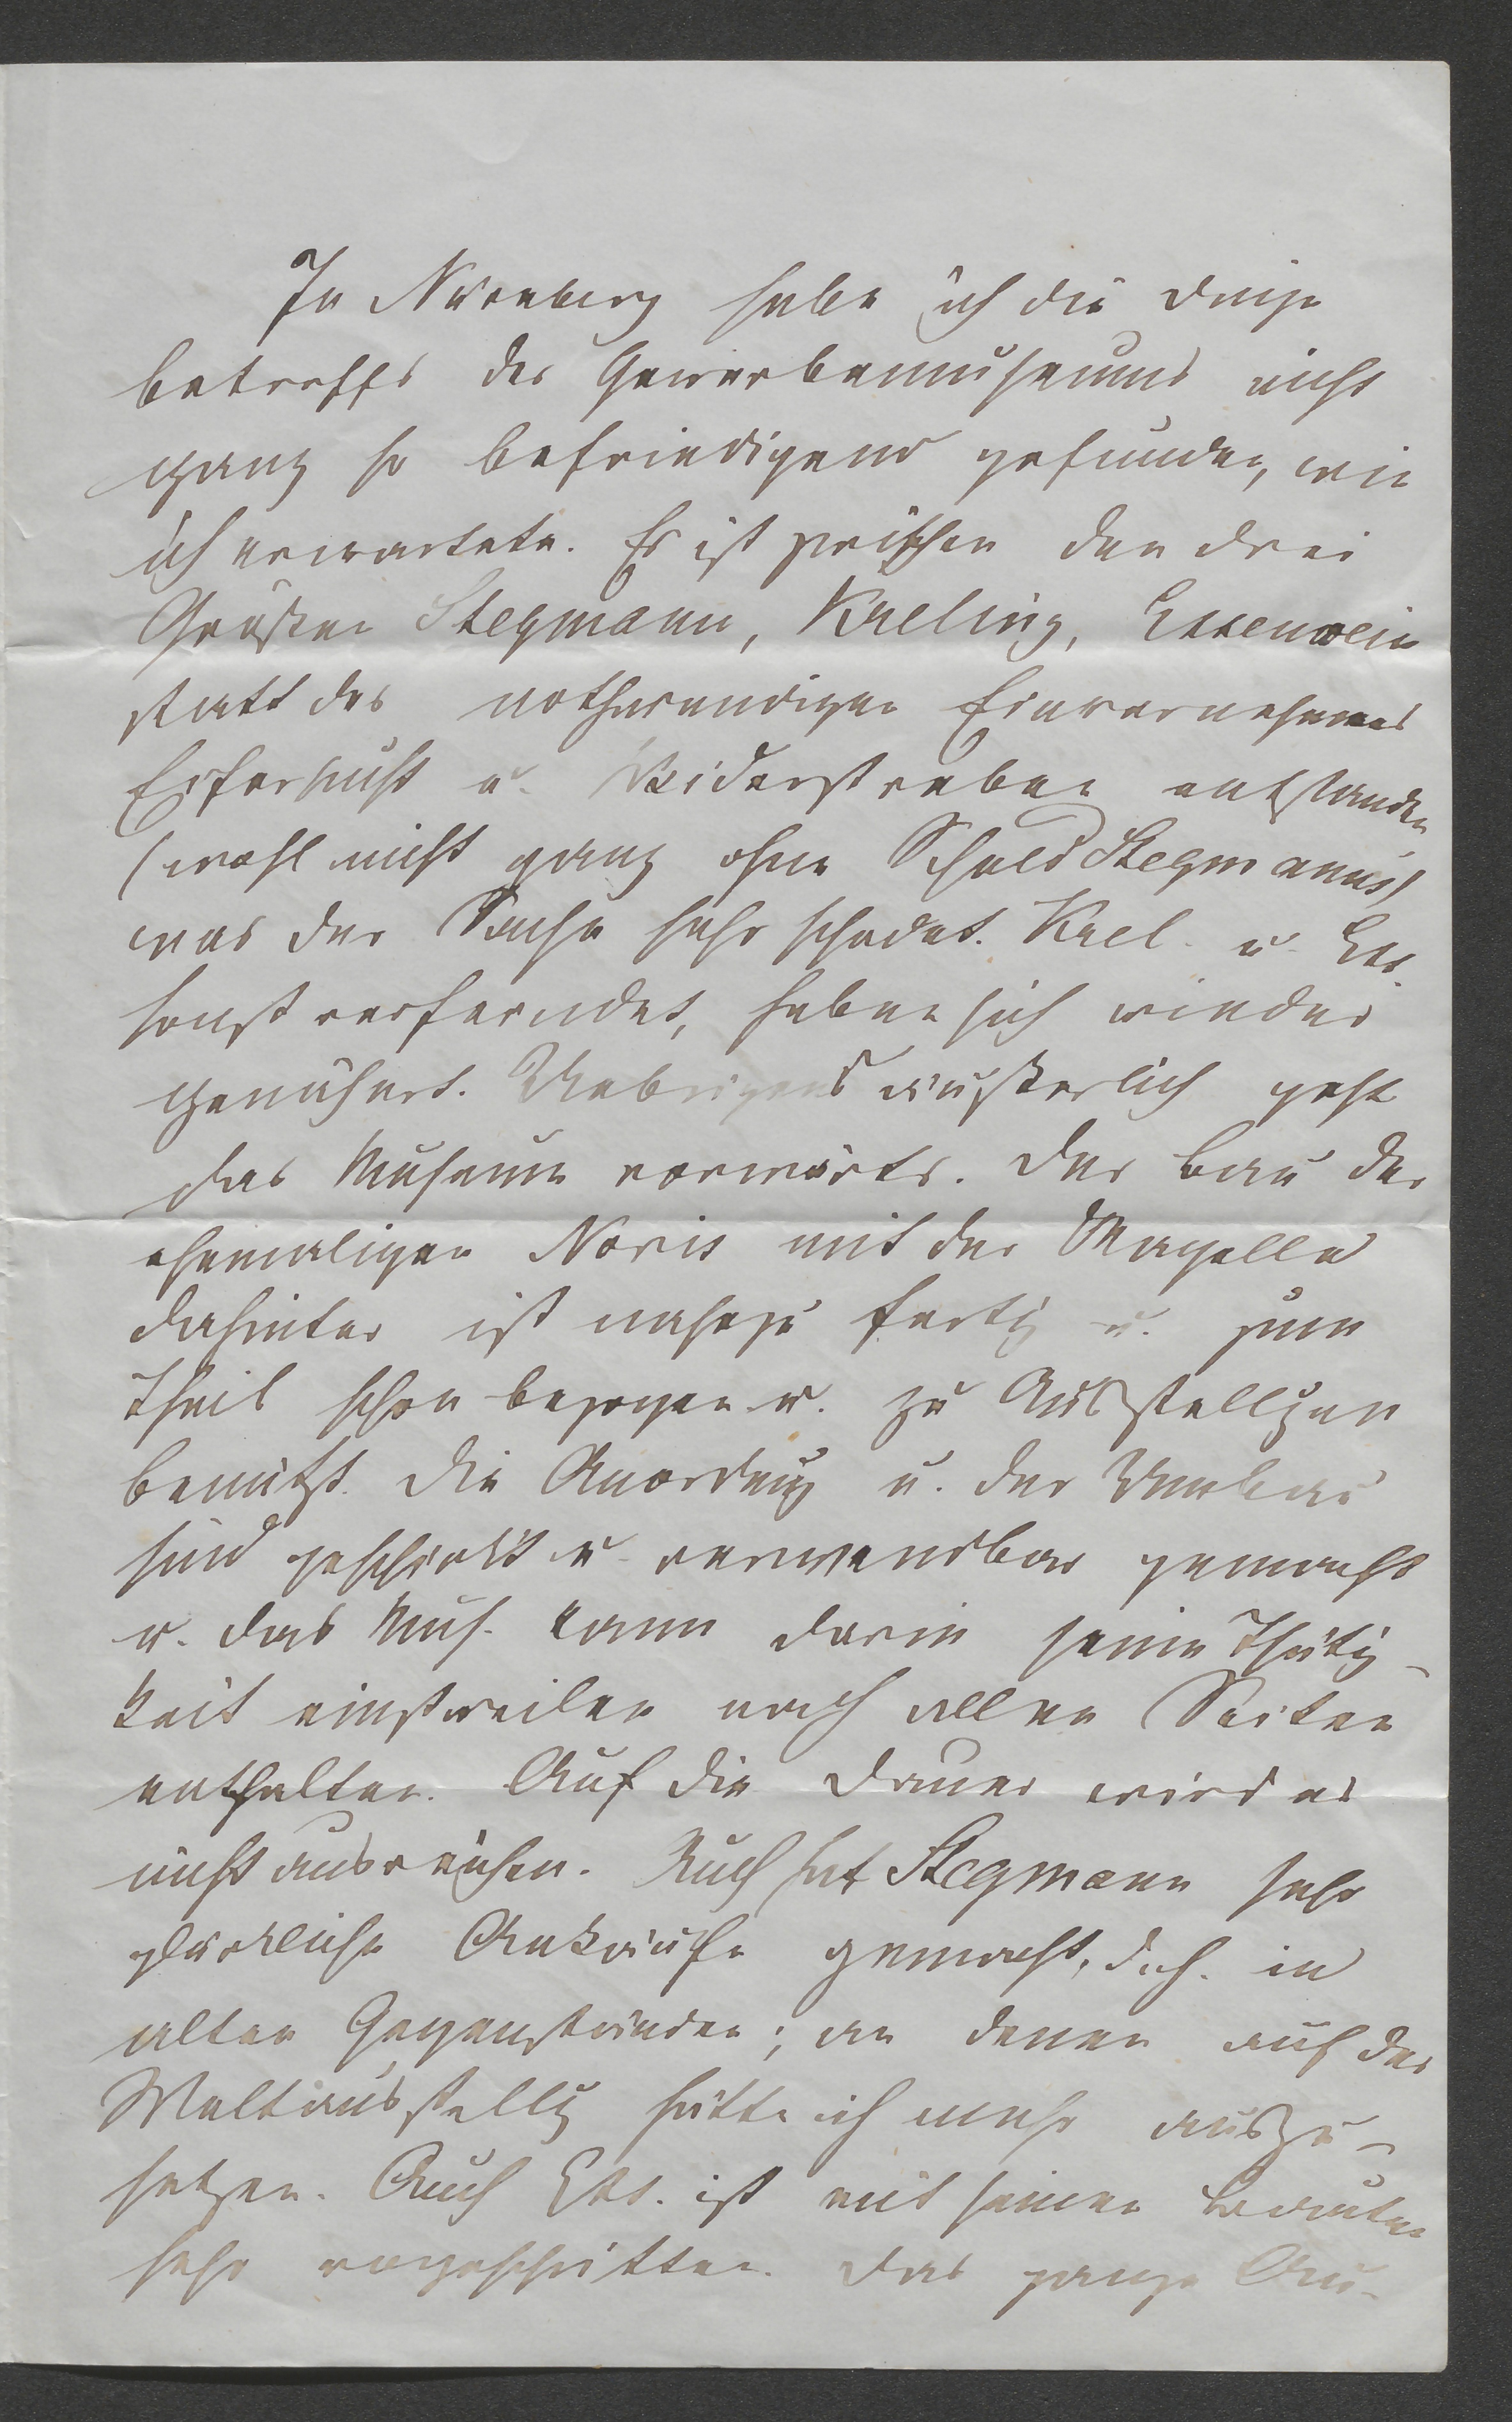 In Nürnberg habe ich die Dinge
betreffs des Gewerbemuseums nicht
ganz so befriedigend gefunden, wie
ich erwartete. Es ist zwischen den drei
Größen Stegmann, Kreling, Essenwein
statt des nothwendigen Einvernehmens
Eifersucht u. Widerstreben entstanden
(wohl nicht ganz ohne Schuld Stegmanns)
was der Sache sehr schadet. Krel. u. Ess.
sonst verfeindet, haben sich wieder
genähert. Uebrigens äußerlich geht
das Museum vorwärts. Der Bau der
ehemaligen Noris mit der
dahinter ist nahezu fertig u. zum
Theil schon bezogen u. zu Ausstellgen
benützt. Die Anordnug u. der Umbau
sind geschickt u. verwendbar gemacht
u. das Mus. kann darin seine Thätig-
keit einstweilen nach allen Seiten
entfalten. Auf die Dauer wird es
nicht ausreichen. Auch hat Stegmann sehr
glückliche Ankäufe gemacht, d.h. in
alten Gegenständen; an denen auf der
Weltausstellg hätte ich mehr auszu-
setzen. Auch Ess. ist mit seinen Bauten
sehr vorgeschritten. Das ganze Au-